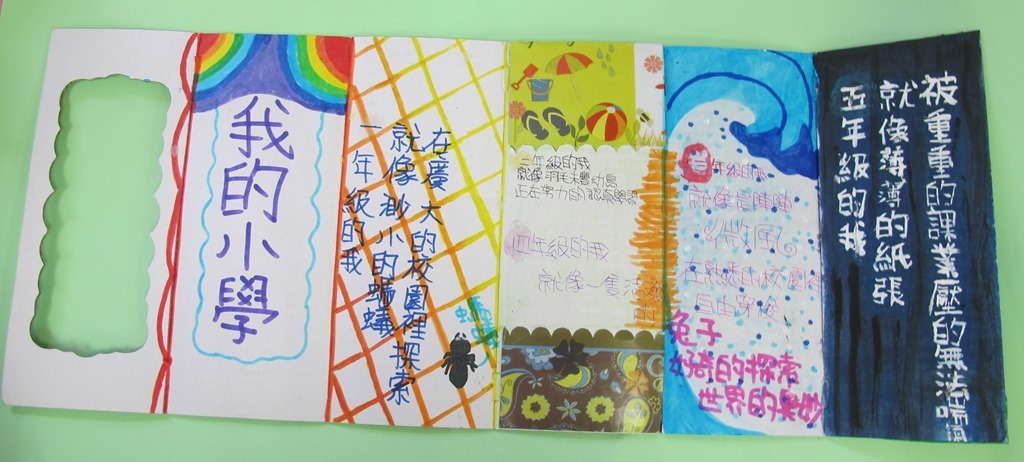 我的小學
一年級的我
就像渺小的螞蟻
在大的校園裡探索
螞蟻
三年級的我
就像羽毛未豐幼鳥
正在努力的認真學習
四年級的我
就像一隻活潑的
二年級的我
就像是陣陣
微風
在熟悉的校園裡
自由穿梭
兔子
好奇的探索
世界的奧妙
五年級的我
就像薄薄的紙張
被重重的課業壓的無法喘